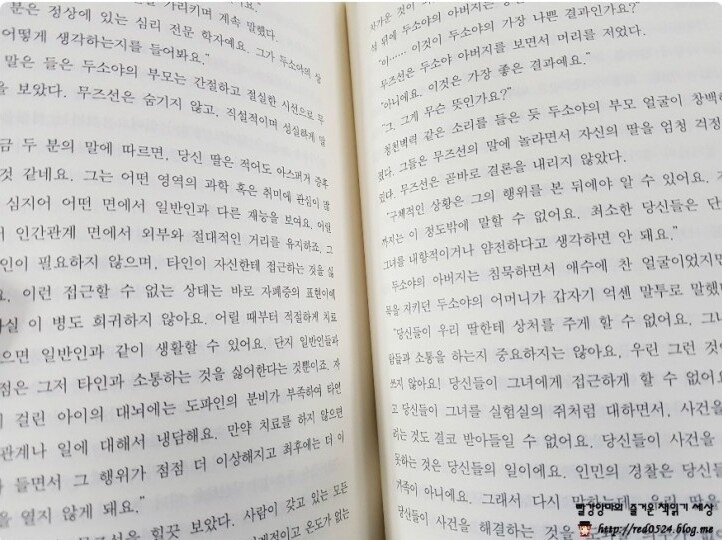 가리키며 계속 말했다.
분은 정상에 있는 심리 전문 학자예요. 그가 두소야의 상
어떻게 생각하는지를 들어봐요."
말은 들은 두소야의 부모는 간절하고 절실한 시선으로 무
을 보았다. 무즈선은 숨기지 않고, 직설적이며 성실하게 말
금 두 분의 말에 따르면, 당신 딸은 적어도 아스퍼거 증후
것 같네요. 그는 어떤 영역의 과학 혹은 취미에 관심이 많
심지어 어떤 면에서 일반인과 다른 재능을 보여요. 어릴
인간관계 면에서 외부와 절대적인 거리를 유지하죠. 그
인이 필요하지 않으며, 타인이 자신한테 접근하는 것을 싫
요. 이런 접근할 수 없는 상태는 바로 자폐증의 표현이에
사실 이 병도 희귀하지 않아요. 어릴 때부터 적절하게 치료
으면 일반인과 같이 생활할 수 있어요. 단지 일반인들과
점은 그저 타인과 소통하는 것을 싫어한다는 것뿐이죠. 자
걸린 아이의 대뇌에는 도파민의 분비가 부족하여 타인
관계나 일에 대해서 냉담해요. 만약 치료를 하지 않으면
들면서 그 행위가 점점 더 이상해지고 최후에는 더 이
을 열지 않게 돼요."
을 힐끗 보았다. 사람이 갖고 있는 모든
계적이고 온도가 없는
가운 것이
섬 뒤에 두소야의 아버지는
"아…… 이것이 두소야의 가장 나쁜 결과인가요?"
무즈선은 두소야 아버지를 보면서 머리를 저었다.
"아니에요. 이것은 가장 좋은 결과예요."
"그, 그게 무슨 뜻인가요?"
청천벽력 같은 소리를 들은 듯 두소야의 부모 얼굴이 창백하
졌다. 그들은 무즈선의 말에 놀라면서 자신의 딸을 엄청 걱정
있다. 무즈선은 곧바로 결론을 내리지 않았다.
"구체적인 상황은 그의 행위를 본 뒤에야 알 수 있어요. 지
까지는 이 정도밖에 말할 수 없어요. 최소한 당신들은 단
그녀를 내향적이거나 얌전하다고 생각하면 안 돼요."
두소야의 아버지는 침묵하면서 애수에 찬 얼굴이었지만
묵을 지키던 두소야의 어머니가 갑자기 억센 말투로 말했
"당신들이 우리 딸한테 상처를 주게 할 수 없어요. 그녀
람들과 소통을 하는지 중요하지는 않아요. 우린 그런 것에
쓰지 않아요! 당신들이 그녀에게 접근하게 할 수 없어요
고 당신들이 그녀를 실험실의 쥐처럼 대하면서, 사건을
려는 것도 결코 받아들일 수 없어요. 당신들이 사건을
못하는 것은 당신들의 일이에요. 인민의 경찰은 당신들
가족이 아니에요. 그래서 다시 말하는데, 우리 딸을
당신들이 사건을 해결하는 것을
빨강앙마의 즐거운 책읽기 세상
http://red0524.blog.me